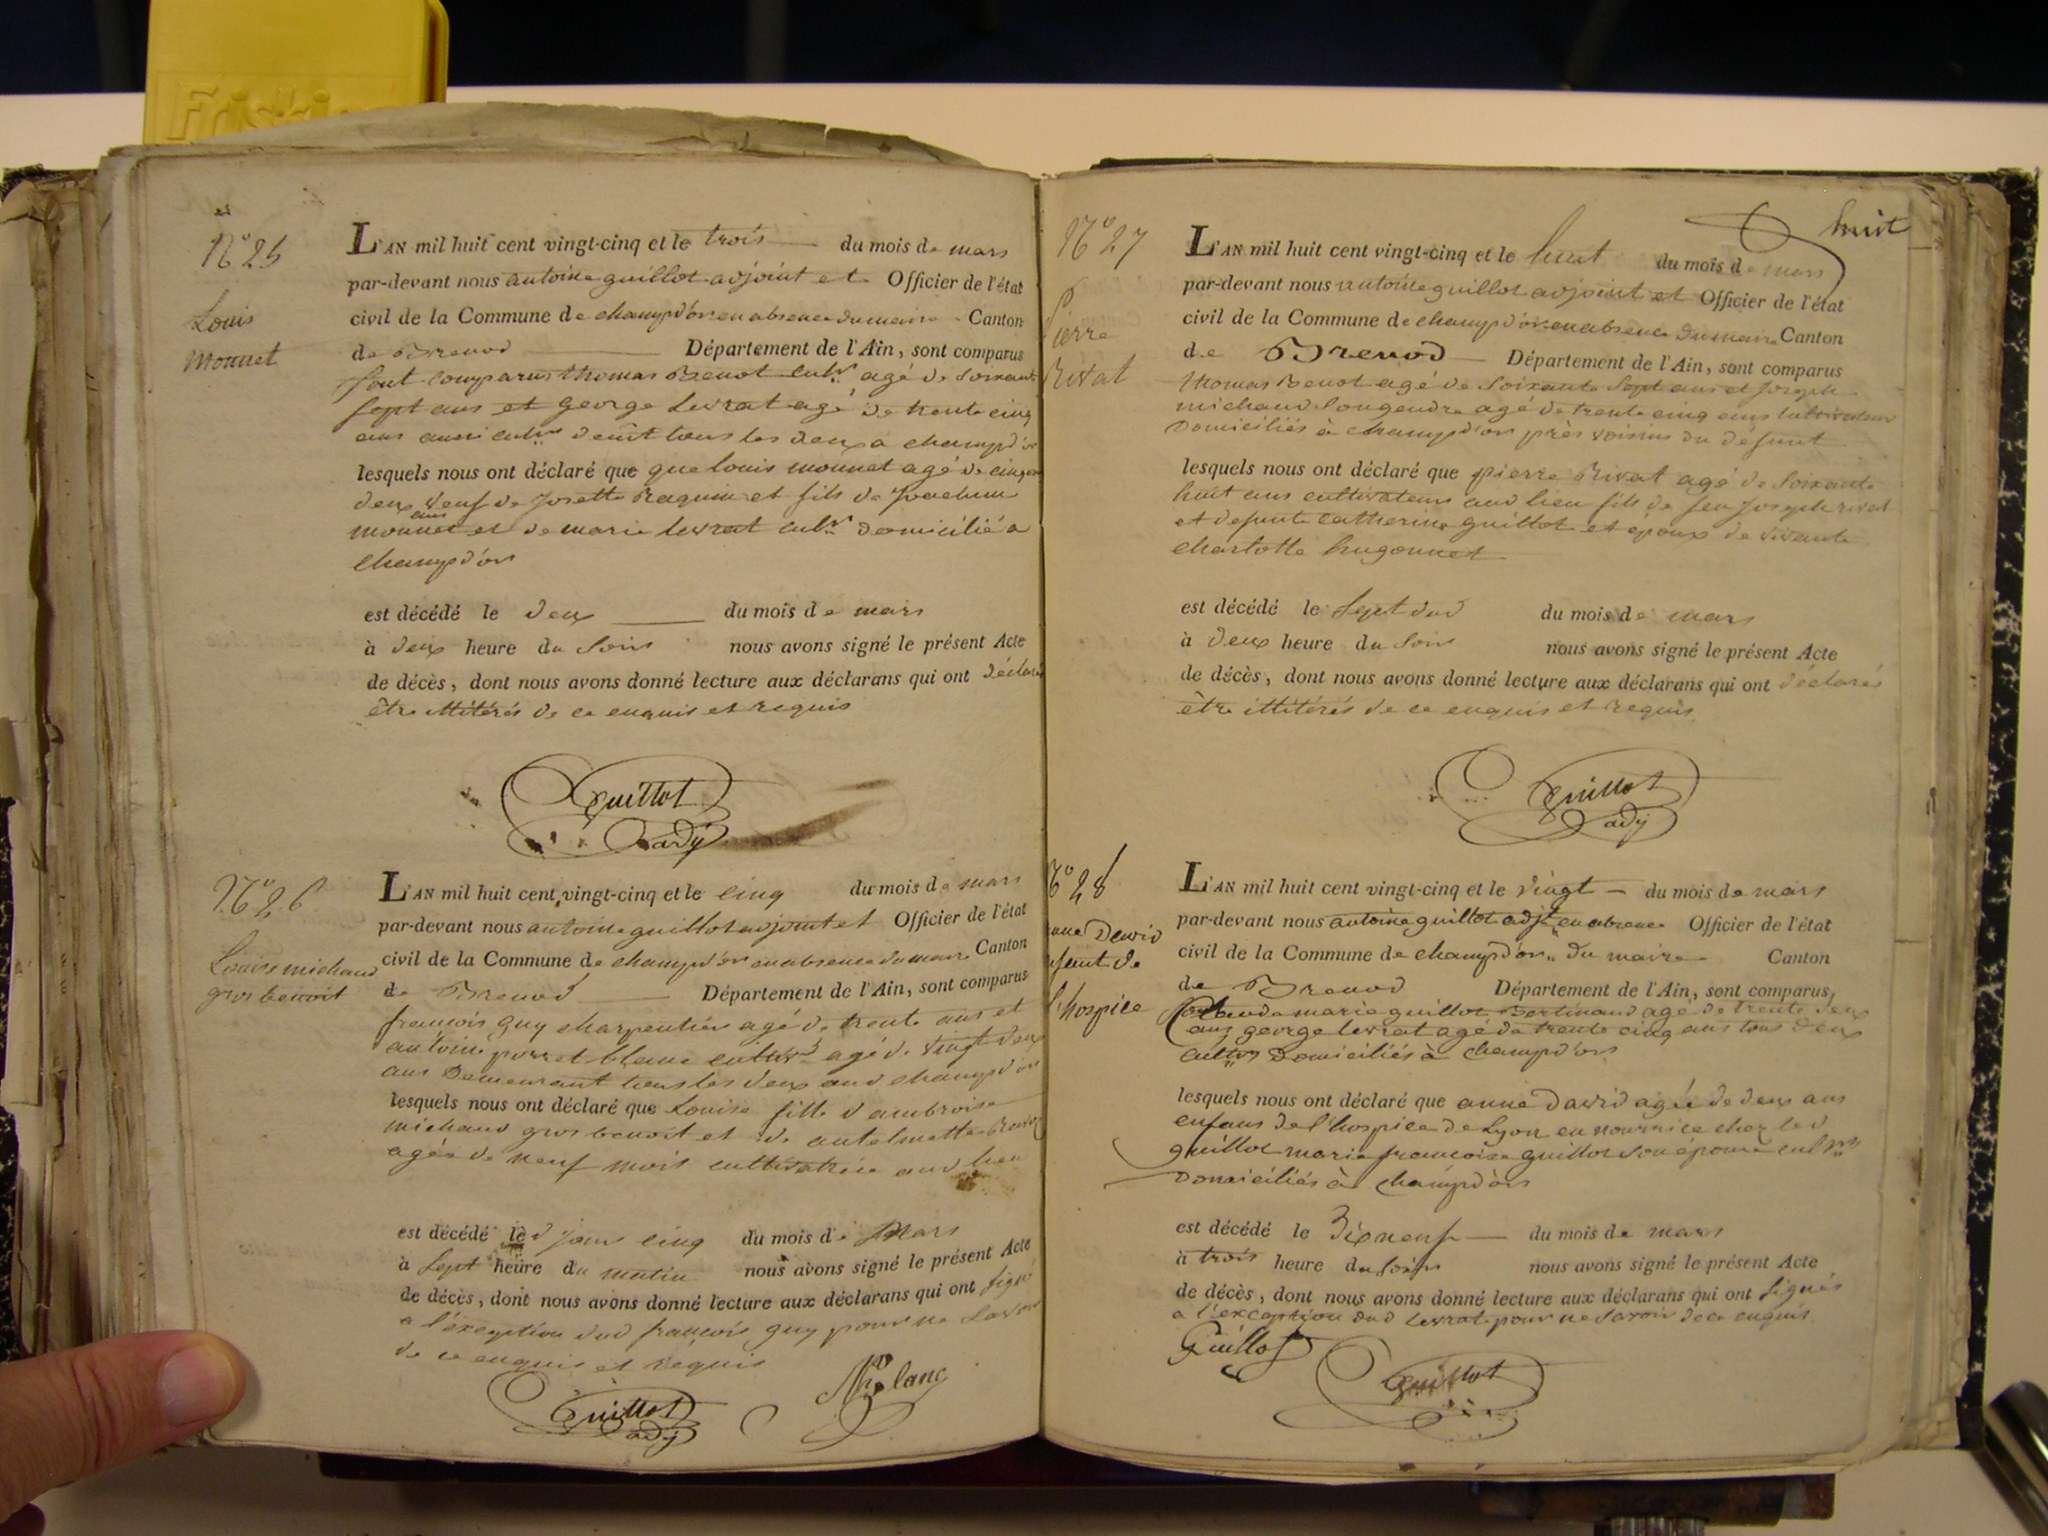 N° 25
Louis
Monnet
L'AN mil huit cent vingt-cinq et le trois du mois de mars
par-devant nous antoine guillot adjoint et Officier de l'état
civil de la Commune de champd'or en absence du maire Canton
de Brenod Département de l'Ain, sont comparus
sont comparus thomas Benot cultr agé de soixante
sept ans et george Levrat agé de trente cinq
ans aussi cultr tous les deux a champd'or
lesquels nous ont déclaré que que louis monnet agé de
deux ans veuf de Josette Raquin et fils de Joachim
monnet et de marie levrat cultr domicilié a
champd'or
est décédé le deux du mois de mars
à deux heure du soir nous avons signé le présent Acte
de décès, dont nous avons donné lecture aux déclarans qui ont déclaré
être illitérés de ce enquis et requis
Guillot
adj
N° 26
Louise michaud
gros benoit
L'AN mil huit cent vingt-cinq et le cinq du mois de mars
par-devant nous antoine guillot adjoint et Officier de l'état
civil de la Commune de champd'or en absence du maire Canton
de Brenod Département de l'Ain, sont comparus
francois guy charpentier agé de trente ans et
antoine blanc agé de vingt deux
ans Demeurant tous les deux aud champd'or
lesquels nous ont déclaré que Louise fille d'ambroise
michaud gros benoit et de antelmette
agée de neuf mois cultivatrice aud lieu
est décédé le d jour cinq du mois de Mars
à sept heure du matin nous avons signé le présent Acte
de décès, dont nous avons donné lecture aux déclarans qui ont signé
a l'exception dud francois guy pour ne savoir
de ce enquis et requis
Guillot
adj
Blanc
huit
N° 27
Pierre
Rivat
L'AN mil huit cent vingt-cinq et le huit du mois de mars
par-devant nous antoine guillot adjoint et Officier de l'état
civil de la Commune de champd'or en absence du maire Canton
de Brenod Département de l'Ain, sont comparus
thomas Benot agé de soixante sept ans et Joseph
michaud Songendre agé de trente cinq ans cultivateurs
Domiciliés à champd'or près voisins du défunt
lesquels nous ont déclaré que pierre Rivat agé de soixante
huit ans cultivateur aud lieu fils de feu Joseph rivat
et defunte catherine guillot et epoux de vivante
charlotte hugonnet
est décédé le sept dud du mois de mars
à deux heure du soir nous avons signé le présent Acte
de décès, dont nous avons donné lecture aux déclarans qui ont déclarés
être illitérés de ce enquis et requis
Guillot
adj
N° 28
anne David
enfant de
l'hospice
L'AN mil huit cent vingt-cinq et le vingt du mois de mars
par-devant nous antoine guillot adjt en absence Officier de l'état
civil de la Commune de champd'or du maire Canton
de Brenod Département de l'Ain, sont comparus,
Claude marie guillot Bertinand agé de trente deux
ans george levrat agé de trente cinq ans tous deux
cultrs Domiciliés à champd'or
lesquels nous ont déclaré que anne david agée de deux ans
enfans de l'hospice de Lyon en nourrice chez led
guillot marie francoise guillot son épouse cultrs
Domiciliés à champd'or
est décédé le Dix neuf du mois de mars
à trois heure du soir nous avons signé le présent Acte
de décès, dont nous avons donné lecture aux déclarans qui ont signés
a l'exception dud Levrat pour ne savoir de ce enquis
Guillot
Guillot